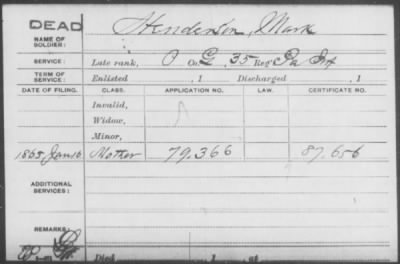 DEAD
NAME OF SOLDIER: Henderson, Mark
SERVICE: Late rank, P Co. G, 35 Reg't Pa Inf
TERM OF SERVICE: Enlisted , 1 Discharged , 1
DATE OF FILING. CLASS. APPLICATION NO. LAW. CERTIFICATE NO.
Invalid,
Widow,
Minor,
1865 Jan 16 Mother 79.366 87.656
ADDITIONAL SERVICES:
REMARKS:
Died , 1 , at